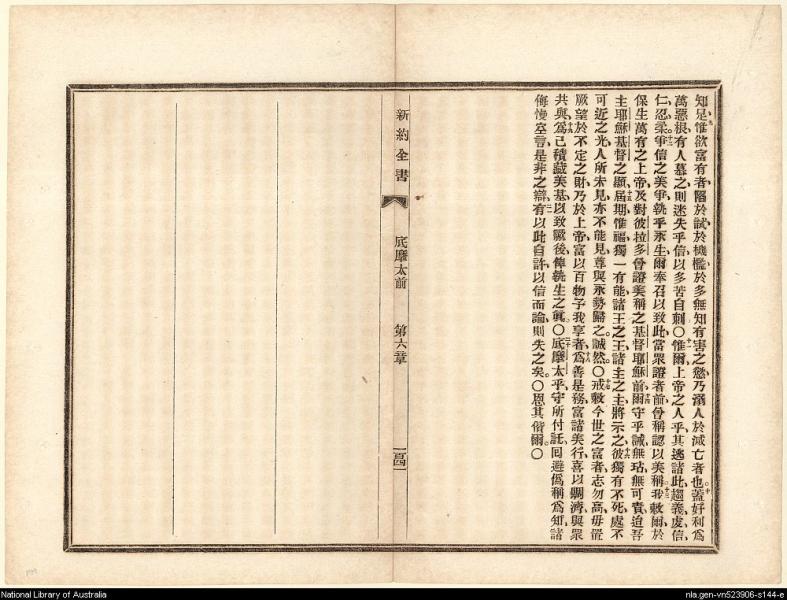 知足、惟欲富有者、陷於試、於機檻、於多無知有害之慾、乃溺人於滅亡者也。蓋好利爲
萬惡根、有人慕之、則迷失乎信、以多苦自刺〇惟爾上帝之人乎、其逃諸此、趨義、虔、信、
仁、忍、柔、爭信之美爭、執乎永生、爾奉召以致此、當眾證者前、曾稱認以美稱。我敕爾於
保生萬有之上帝、及對彼拉多曾證美稱之基督耶穌前、爾守乎誡、無玷、無可責、迨吾
主耶穌基督之顯、屆期、惟福獨一有能、諸王之王、諸主之主、將示之、彼獨有不死、處不
可近之光、人所未見、亦不能見、尊與永勢歸之。誠然。〇戒敕今世之富者、志勿高、毋置
厥望於不定之財、乃於上帝、富以百物予我享者、爲善是務、富諸美行、喜以賙濟、與眾
共與、爲己積藏美基、以致厥後、俾執生之眞。〇底摩太乎、守所付託、囘避僞稱爲知、諸
侮慢空言、是非之辯、有以此自許、以信而論、則失之矣。〇恩其偕爾〇
新約全書
底摩太前
第六章
一百四一
National Library of Australia
nla.gen-vn523906-s144-e